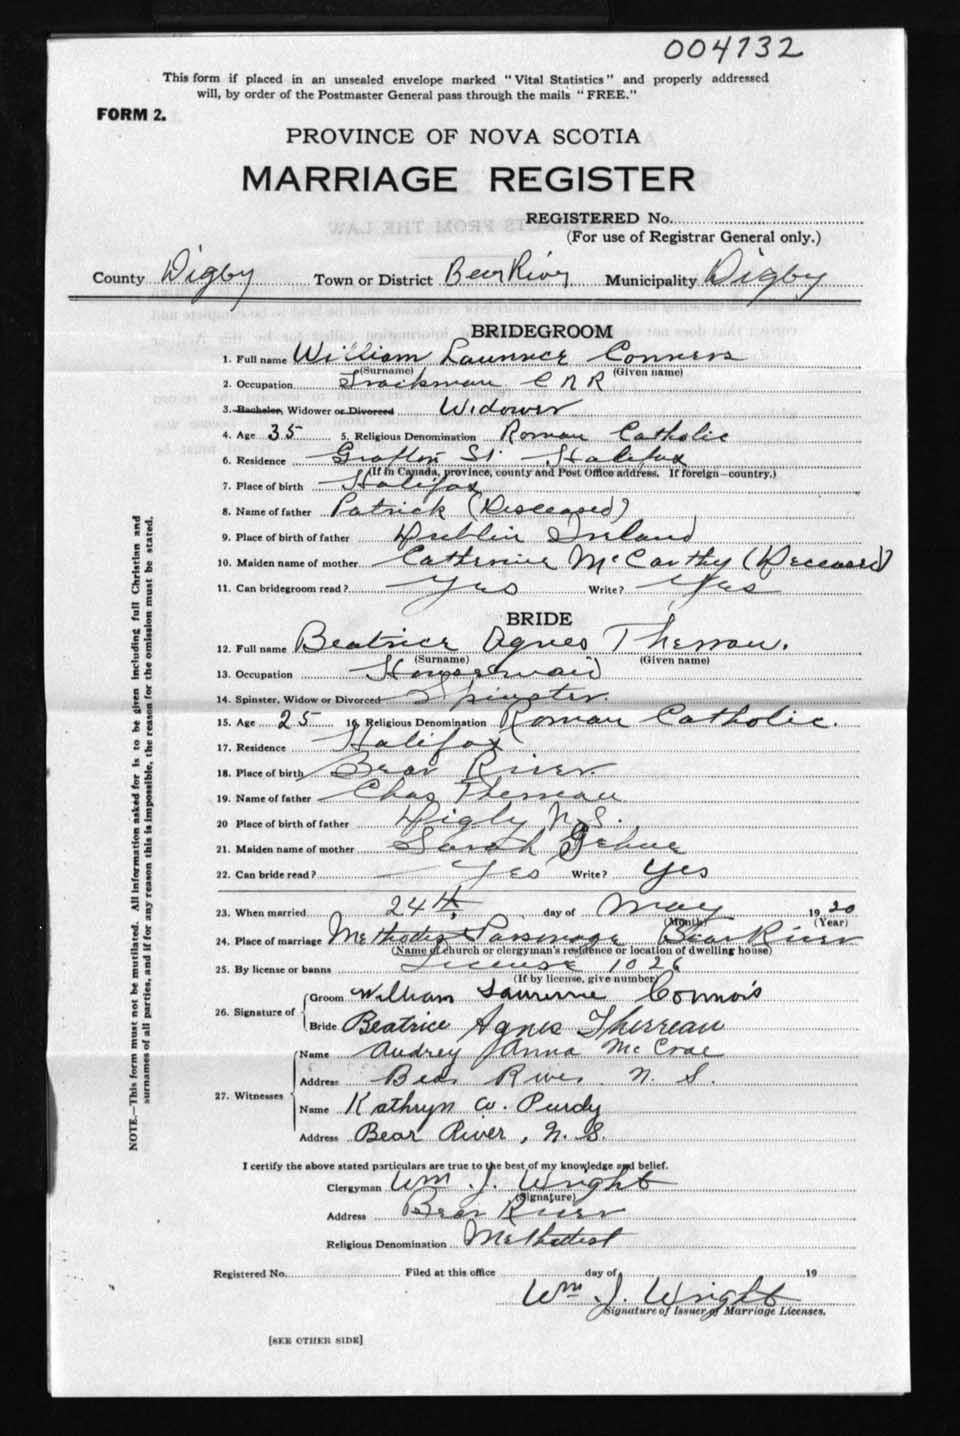 004732
This form if placed in an unsealed envelope marked "Vital Statistics" and properly addressed
will, by order of the Postmaster General pass through the mails "FREE."
FORM 2.
PROVINCE OF NOVA SCOTIA
MARRIAGE REGISTER
REGISTERED No.
(For use of Registrar General only.)
County Digby Town or District Bear River Municipality Digby
BRIDEGROOM
1. Full name William Laurence Conners
(Surname) (Given name)
2. Occupation Trackman C N R
3. Bachelor, Widower or Divorced Widower
4. Age 35 5. Religious Denomination Roman Catholic
6. Residence Grafton St. Halifax
(If in Canada, province, county and Post Office address. If foreign—country.)
7. Place of birth Halifax
8. Name of father Patrick (Deceased)
9. Place of birth of father Dublin Ireland
10. Maiden name of mother Catherine McCarthy (Deceased)
11. Can bridegroom read? Yes Write? Yes
BRIDE
12. Full name Beatrice Agnes Therrau.
(Surname) (Given name)
13. Occupation Housemaid
14. Spinster, Widow or Divorced Spinster.
15. Age 25 16. Religious Denomination Roman Catholic.
17. Residence Halifax
18. Place of birth Bear River.
19. Name of father Chas Therreau
20 Place of birth of father Digby N.S.
21. Maiden name of mother Sarah
22. Can bride read? Yes Write? Yes
23. When married 24th day of May 1920
(Month) (Year)
24. Place of marriage Methodist Parsonage Bear River
(Name of church or clergyman's residence or location of dwelling house)
25. By license or banns License 1026
(If by license, give number)
26. Signature of Groom William Laurence Connors
Bride Beatrice Agnes Therreau
27. Witnesses Name Audrey Anna McCrae
Address Bear River. N. S.
Name Kathryn W. Purdy
Address Bear River, N. S.
I certify the above stated particulars are true to the best of my knowledge and belief.
Clergyman Wm. J. Wright
(Signature)
Address Bear River
Religious Denomination Methodist
Registered No. Filed at this office day of 19
Wm. J. Wright
Signature of Issuer of Marriage Licenses.
[SEE OTHER SIDE]
NOTE.—This form must not be mutilated. All information asked for is to be given including full Christian and
surnames of all parties, and if for any reason this is impossible, the reason for the omission must be stated.